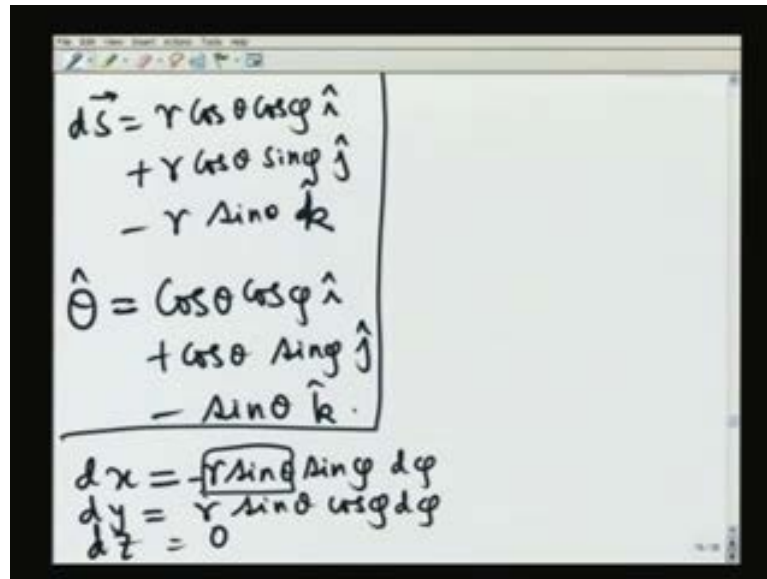 File Edit View Insert Actions Tools Help
d\vec{s} = r cosθ cosφ î
+ r cosθ sinφ ĵ
- r sinθ k̂
θ̂ = cosθ cosφ î
+ cosθ sinφ ĵ
- sinθ k̂.
dx = -r sinθ sinφ dφ
dy = r sinθ cosφ dφ
dz = 0